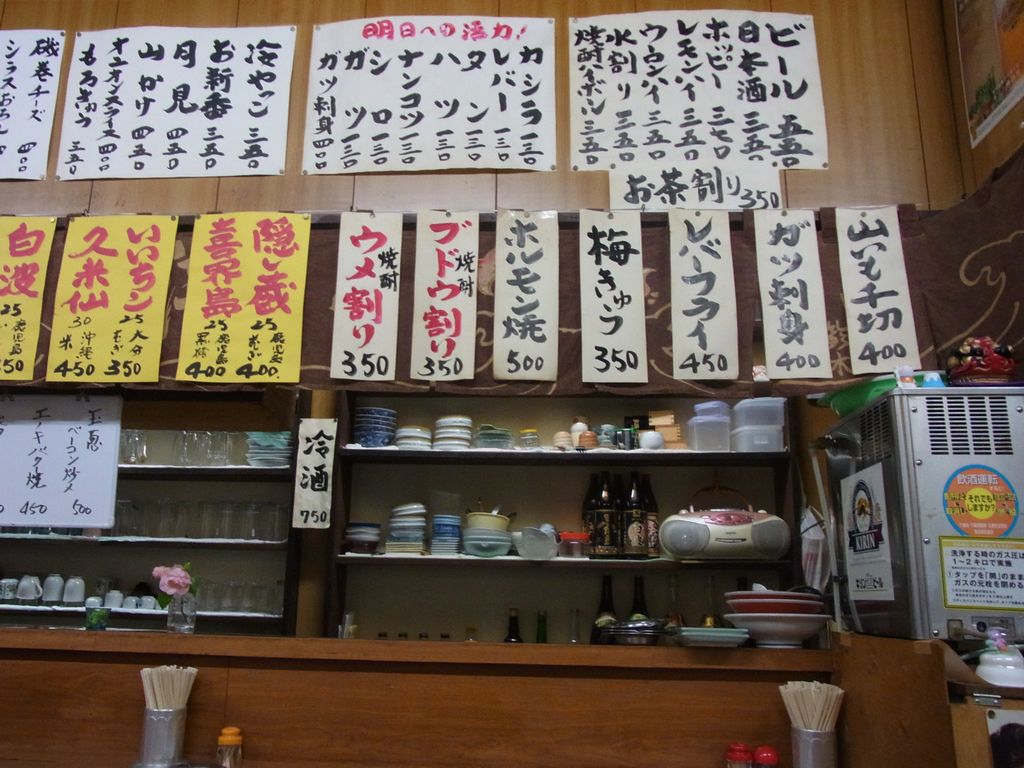 ビール 五五〇
日本酒 三五〇
ホッピー 三七〇
レモンハイ 三五〇
ウーロンハイ 三五〇
水割り 三五〇
焼酎ハイボール 三五〇
お茶割り 350
明日への活力!
カシラ 一三〇
レバー 一三〇
タン 一三〇
ハツ 一三〇
ナンコツ 一三〇
シロ 一三〇
ガツ 一三〇
ガツ刺身 四〇〇
冷やっこ 三五〇
お新香 三五〇
月見 四五〇
山かけ 四五〇
オニオンスライス 四〇〇
もろきゅう 三五〇
磯巻チーズ
シラスおろし
山いも千切 400
ガツ刺身 400
レバーフライ 450
梅きゅう 350
ホルモン焼 500
焼酎
ブドウ割り 350
焼酎
ウメ割り 350
隠し蔵 25 鹿児島 むぎ 400
喜界島 25 鹿児島 黒糖 400
いいちこ 25 大分 むぎ 350
久米仙 30 沖縄 米 450
白波 25 鹿児島 350
冷酒 750
ベーコン炒メ 500
エノキバタ焼 450
KIRIN
飲酒運転
それでもしますか?
洗浄する時のガス圧は
1~2キロで実施
①タップを「開」のまま
ガスの元栓を閉める